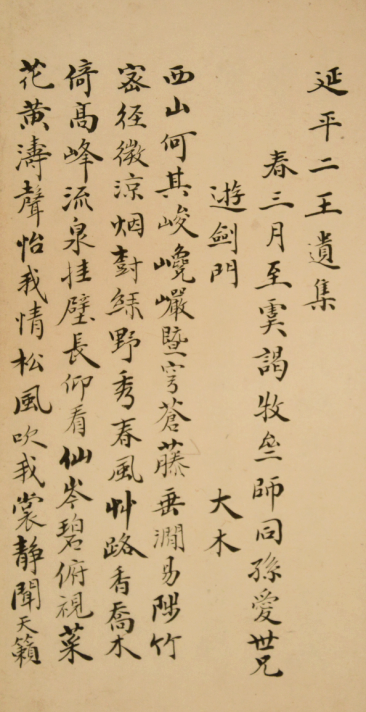 延平二王遺集
春三月至虞謁牧翁師同孫愛世兄
遊劍門　大木
西山何其峻巉巖暨穹蒼藤垂澗易陟竹
密徑微涼烟樹綠野秀春風艸路香喬木
倚高峰流泉挂壁長仰看仙岑碧俯視菜
花黃濤聲怡我情松風吹我裳靜聞天籟